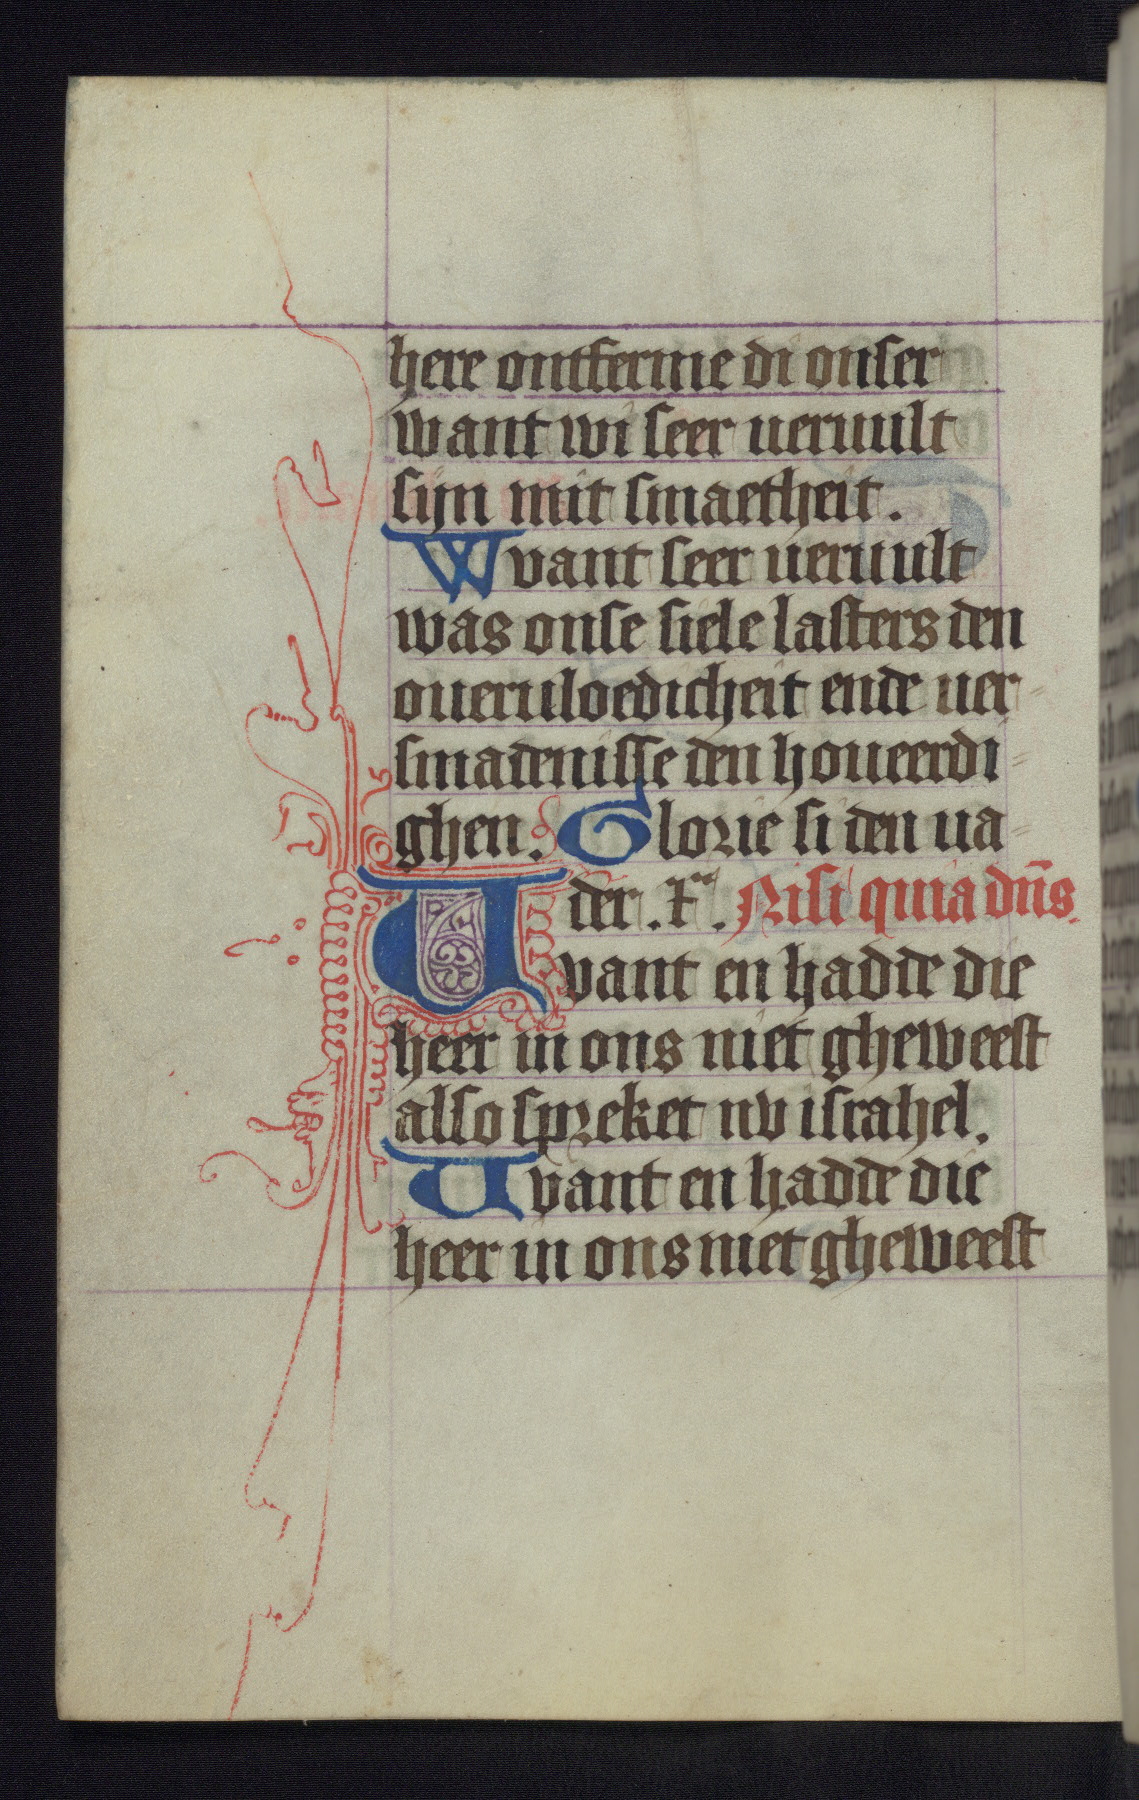 here ontferme di onser
want wi seer ueruult
sijn mit smaetheit.
Wvant seer ueruult
was onse siele lasters den
oueruloedicheit ende uer
smadenisse den houeerdi
ghen. Glorie si den ua
der. Xpc. Nisi quia dn̄s.
Uvant en hadde die
heer in ons niet gheweest
also spreket nv israhel.
Uvant en hadde die
heer in ons niet gheweest